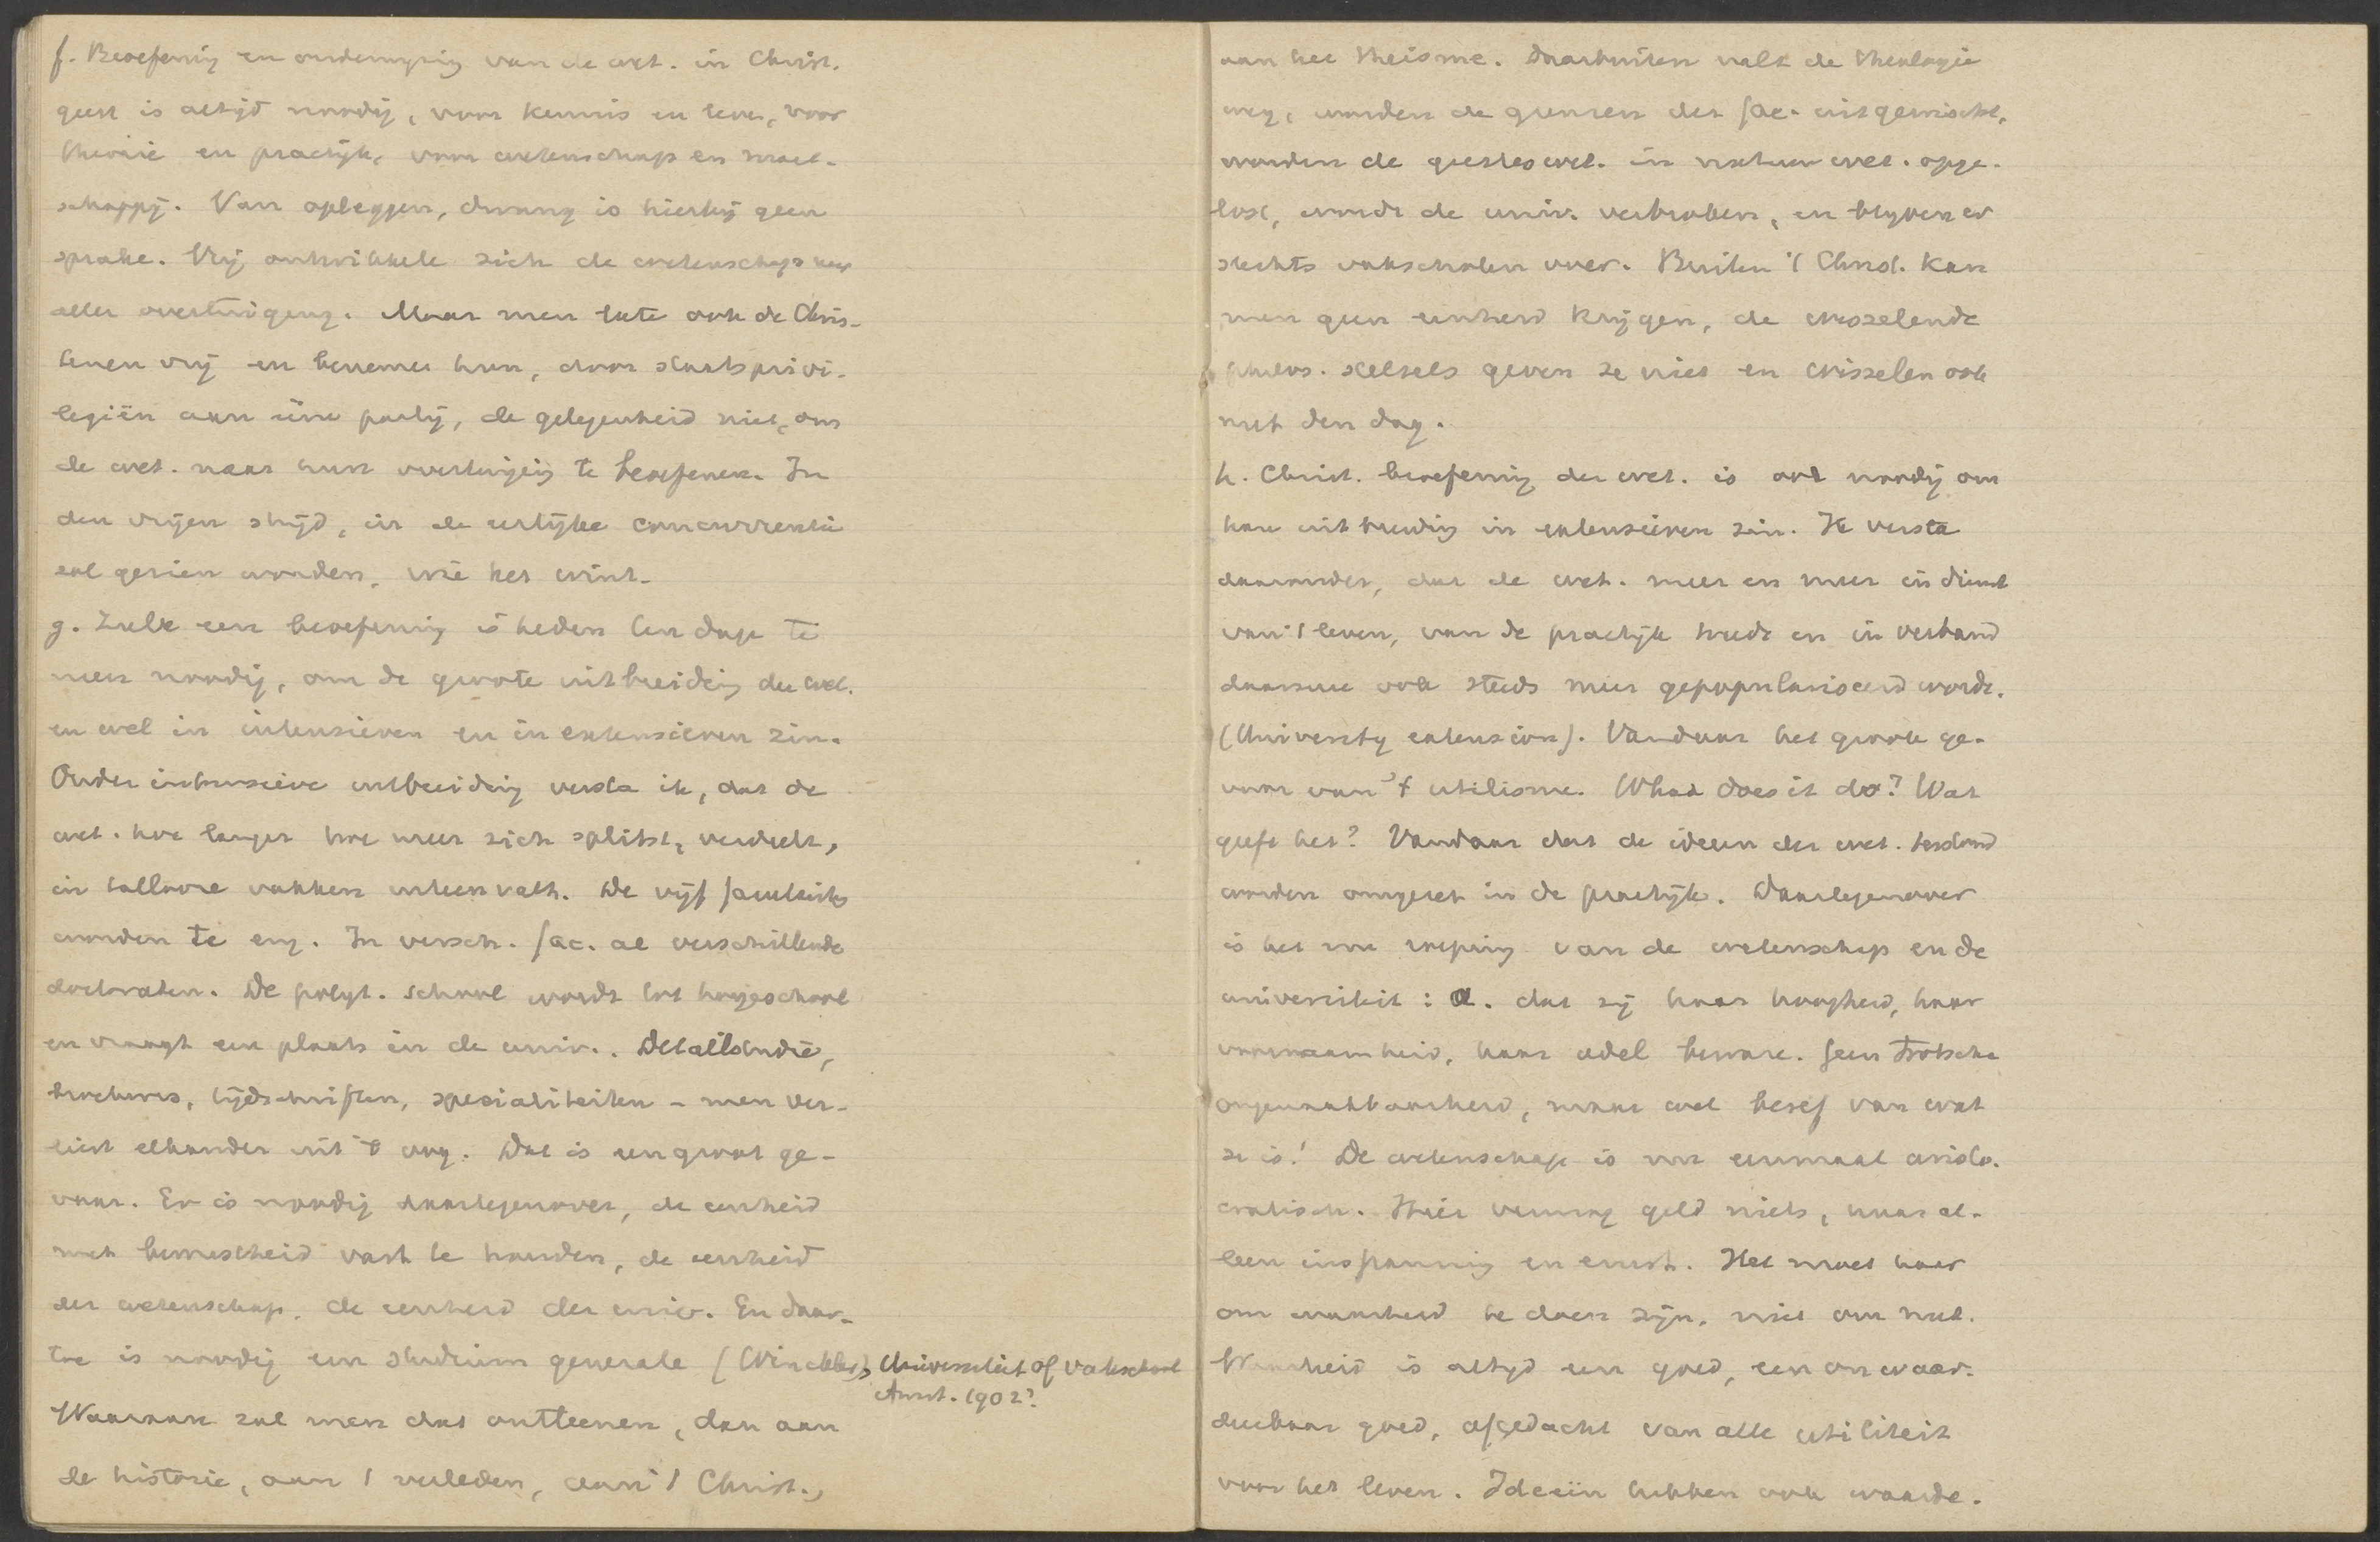 f. Beoefening en onderwijzing van de wet. in Christ.
geest is altijd noodig, voor kennis en leven, voor
theorie en practijk, voor wetenschap en maat-
schappij. Van opleggen, dwang is hierbij geen
sprake. Vrij ontwikkele zich de wetenschap naar
aller overtuiging. Maar men late ook de Chris-
tenen vrij en beneme hun, door staatsprivi-
legiën aan ééne partij, de gelegenheid niet, om
de wet. naar hun overtuiging te beoefenen. In
den vrijen strijd, in de eerlijke concurrentie
zal gezien worden, wie het wint.
g. Zulk een beoefening is heden ten dage te
meer noodig, om de groote uitbreiding der wet.
en wel in intensieven en in extensieven zin.
Onder intensieve uitbreiding versta ik, dat de
wet. hoe langer hoe meer zich splitst, verdeelt,
in tallooze vakken uiteen valt. De vijf faculteiten
worden te eng. In versch. fac. al verschillende
doctoraten. De polyt. school wordt tot hoogeschool
en vraagt een plaats in de univ.. Detailstudie,
brochures, tijdschriften, specialiteiten - men ver-
liest elkander uit 't oog. Dat is een groot ge-
vaar. Er is noodig daartegenover, de eenheid
met bewustheid vast te houden, de eenheid
der wetenschap, de eenheid der univ. En daar-
toe is noodig een studium generale (Winckler), Universiteit of vakschool
Amst. 1902?
Waaraan zal men dat ontleenen, dan aan
de historie, aan 't verleden, aan 't Christ.,
aan het theisme. Daarbuiten valt de theologie
weg, worden de grenzen der fac. uitgewischt,
worden de geesteswet. in natuurwet. opge-
lost, wordt de univ. verbroken, en blijven er
slechts vakscholen over. Buiten 't Christ. kan
men geen eenheid krijgen, de wisselende
philos. stelsels geven ze niet en wisselen ook
met den dag.
h. Christ. beoefening der wet. is ook noodig om
hare uitbreiding in extensieven zin. Ik versta
daaronder, dat de wet. meer en meer in dienst
van 't leven, van de practijk treedt en in verband
daarmee ook steeds meer gepopulariseerd wordt.
(University extension). Vandaar het groote ge-
vaar van 't utilisme. What does it do? Wat
geeft het? Vandaar dat de ideeen der wet. terstond
worden omgezet in de practijk. Daartegenover
is het nu roeping van de wetenschap en de
universiteit: a. dat zij haar hoogheid, haar
voornaamheid, haar adel beware. Geen trotsche
ongenaakbaarheid, maar wel besef van wat
ze is! De wetenschap is nu eenmaal aristo-
cratisch. Hier vermag geld niets, maar al-
leen inspanning en ernst. Het moet haar
om waarheid te doen zijn, niet om nut.
Waarheid is altijd een goed, een onwaar-
deerbaar goed, afgedacht van alle utiliteit
voor het leven. Ideeën hebben ook waarde.